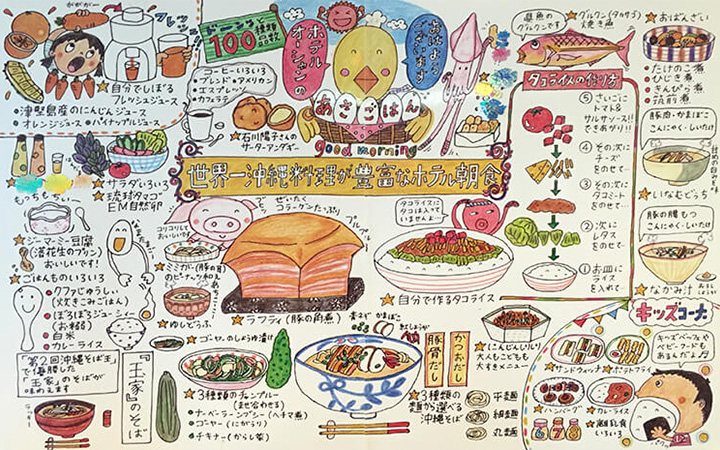 ドドーンと種類
100品数
ホテル
オーシャンの
おはよう
ございます
あさごはん
good morning
世界一沖縄料理が豊富なホテル朝食
ガガガー
フレッシュ
★自分でしぼる
フレッシュジュース
・津堅島産のにんじんジュース
・オレンジジュース・パイナップルジュース
コーヒーいろいろ
・ブレンド・アメリカン
・エスプレッソ
・カフェラテ
★石川陽子さんの
サーターアンダギー
★サラダいろいろ
★琉球タマゴ
EM自然卵
もっちもちぃ〜
★ジーマーミー豆腐
(落花生のプリン)
おいしいです!
★ごはんものいろいろ
・クファジューシィ
(炊きこみごはん)
・ぼろぼろジューシィー
(お粥)
・白米
・カレーライス
コリコリして
おいしいです
★ミミガー(豚の耳)
のピーナツ和え
★ゆしどうふ
ぜいたく
コラーゲンたっぷり
プルプル
★ラフティ(豚の角煮)
タコライスに
タコは入って
いませんよ〜
★自分で作るタコライス
県魚の
グルクンです
★グルクン(タカサゴ)
焼き魚
★おばんざい
・たけのこ煮
・ひじき煮
・きんぴら煮
・筑前煮
タコライスの作り方
⑤さいごに
トマトと
サルサソース!!
でき上がり!!
④その次に
チーズを
のせて…
③その次に
タコミート
をのせて…
②次に
レタス
をのせて…
①お皿に
ライス
を入れて…
豚肉・かまぼこ
こんにゃく・しいたけ
★いなむどぅち
豚の腸もつ
こんにゃく・しいたけ
★なかみ汁
キッズコーナー
キッズビュッフェや
ベビーフードも
あるんだよ♪
★サンドウィッチ ★ポテトフライ
★ハンバーグ ★カレーライス
★離乳食
いろいろ
6 7 8
★にんじんしりしり
大人もこどもも
大すきメニュー
★ゴーヤーのしょうゆ漬け
★3種類のチャンプルー
(まぜ合わせる)
・ナーベーラー(ヘチマ煮)
・ゴーヤー(にがうり)
・チキナー(からし菜)
青ネギ かまぼこ
紅しょうが
豚骨だし
かつおだし
★3種類の
麺から選べる
沖縄そば
平麺
細麺
丸麺
「第2回沖縄そば王」
で優勝した
「玉家」のそばが
味わえます
『玉家』のそば